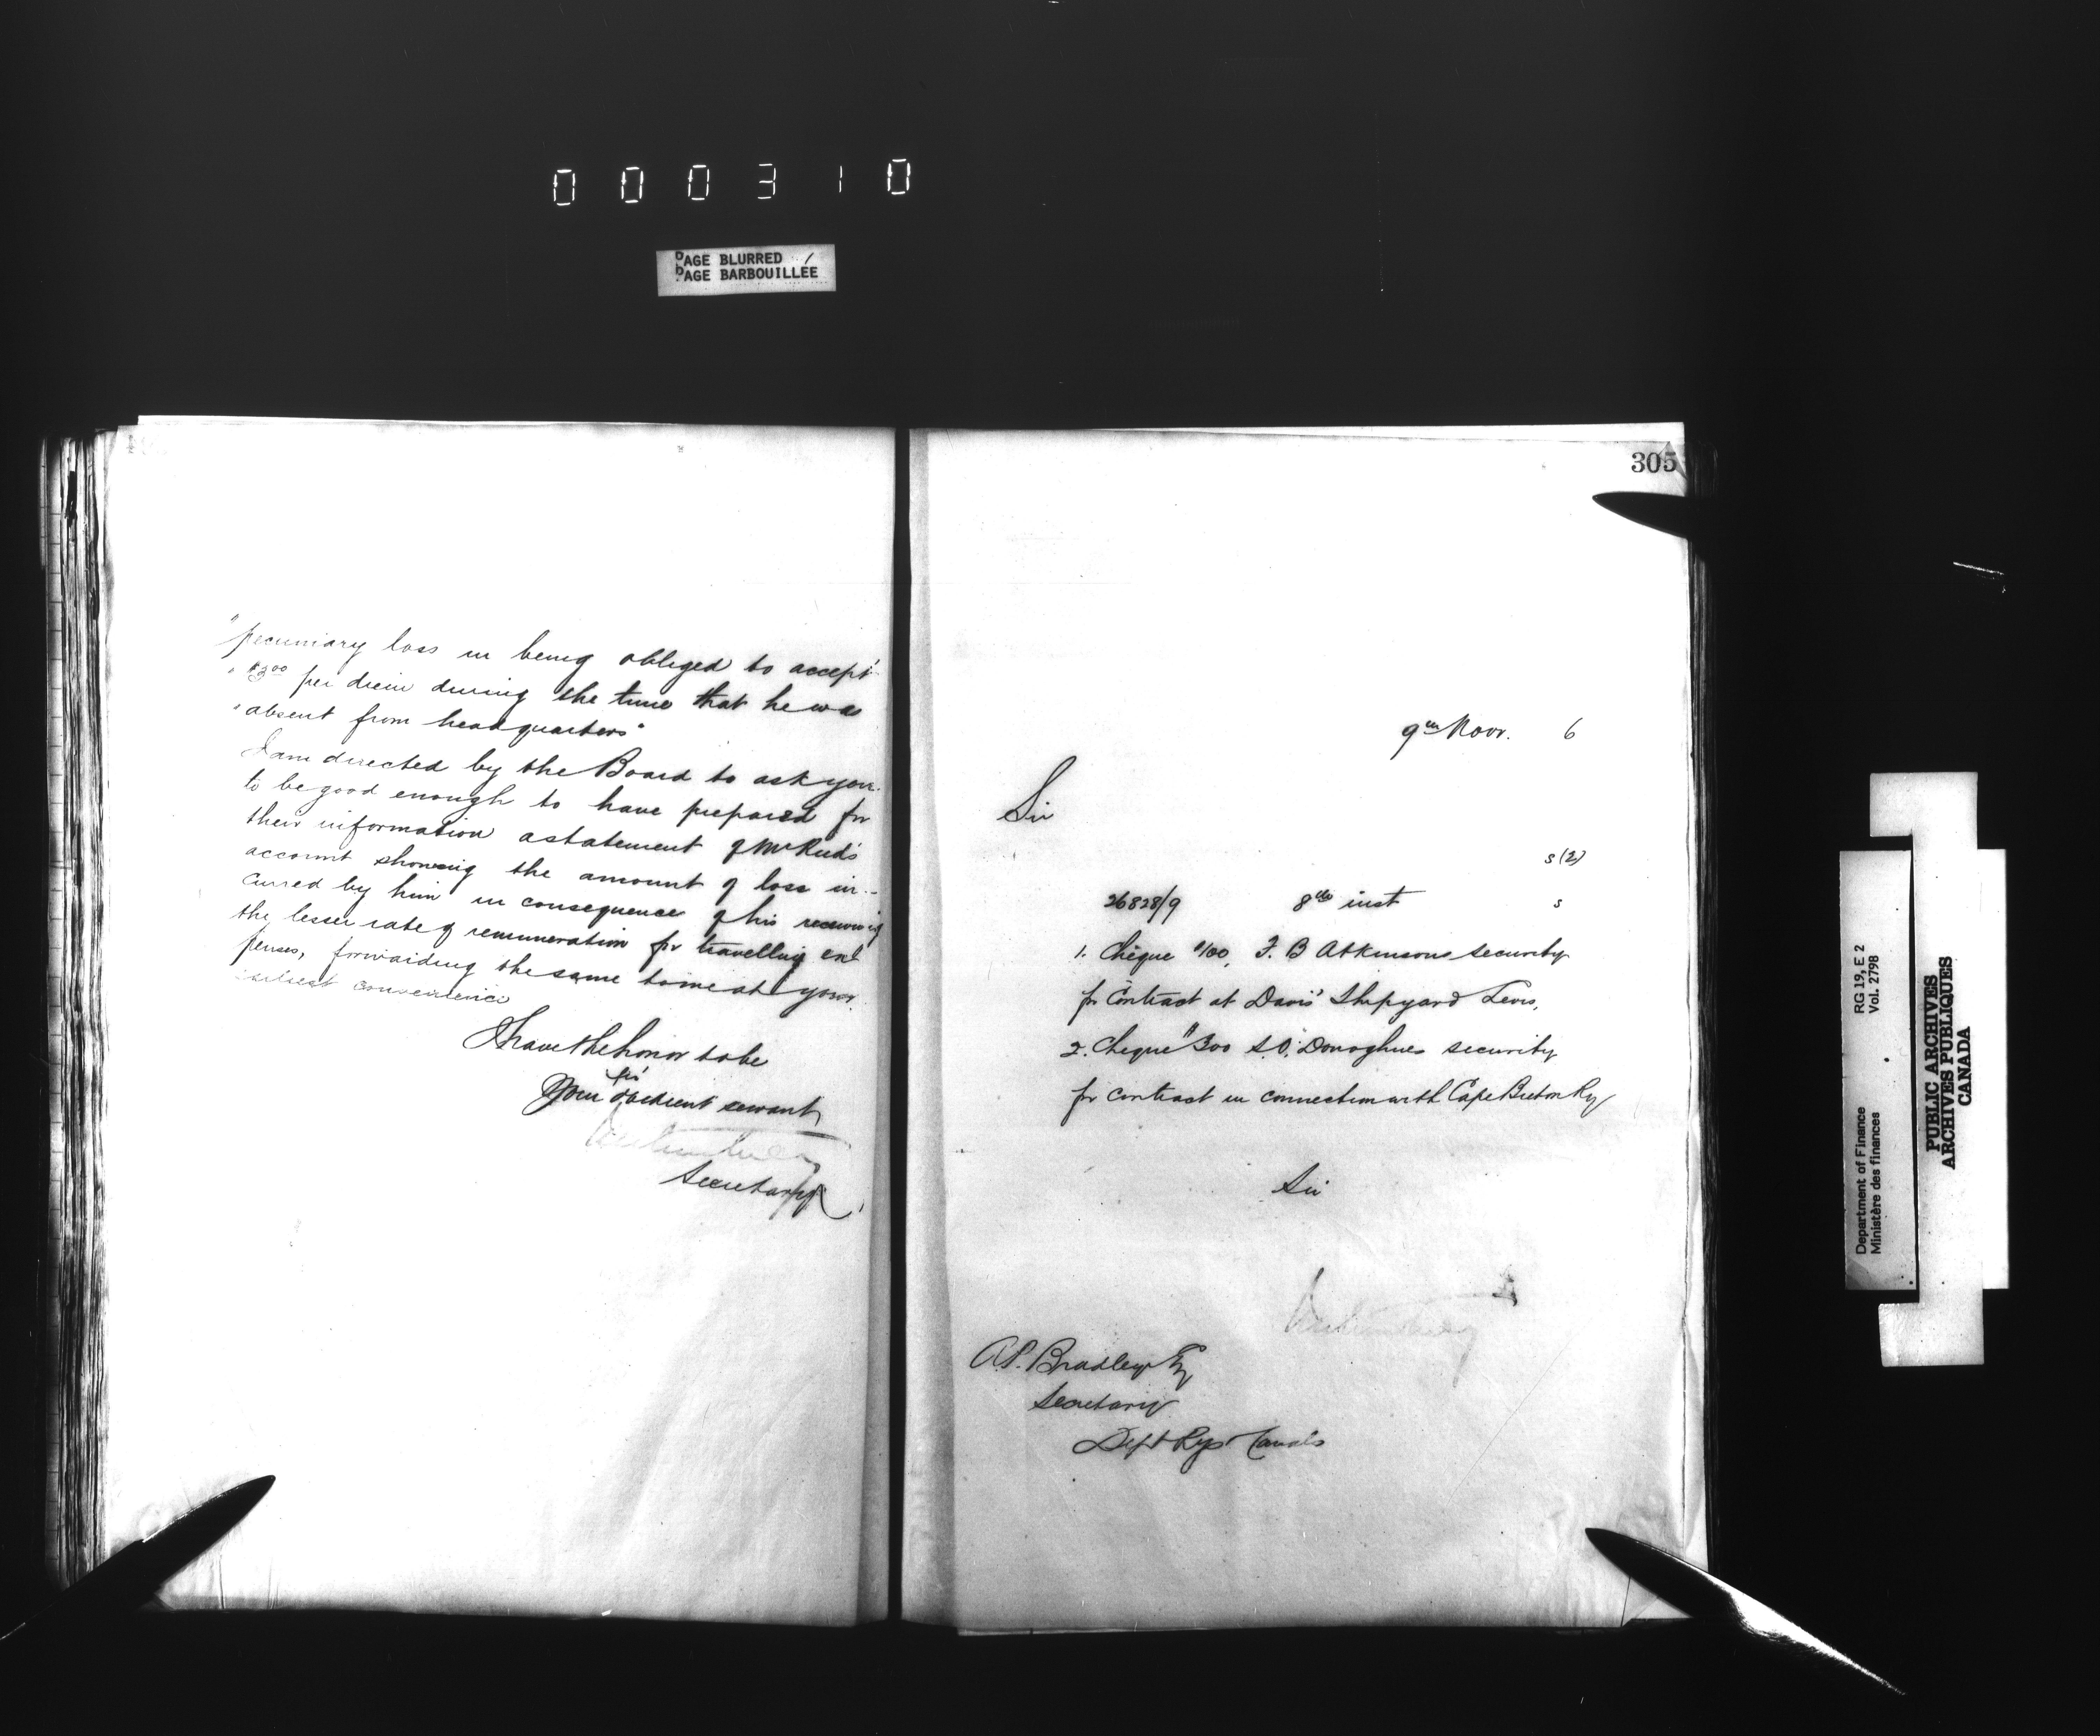 000310
PAGE BLURRED
PAGE BARBOUILLÉE
"pecuniary loss in being obliged to accept
"$3.00 per diem during the time that he was
"absent from headquarters"
I am directed by the Board to ask you
to be good enough to have prepared for
their information a statement of Mr Reid's
account showing the amount of loss in-
curred by him in consequence of his receiving
the lesser rate of remuneration for travelling ex-
penses, forwarding the same to me at your
earliest convenience
I have the honor to be
Sir
Your obedient servant
Secretary
305
9th Novr. 6
Sir
s(2)
26828/9 8th inst s
1. Cheque $100, F. B Atkinsons security
for Contract at Davis' Shipyard Levis,
2. Cheque "300 S.O. Donoghues security
for contract in connection with Cape Breton Ry
Sir
A.P. Bradley Esq
Secretary
Dept Rys & Canals
RG 19, E 2
Vol. 2798
Department of Finance
Ministère des finances
PUBLIC ARCHIVES
ARCHIVES PUBLIQUES
CANADA